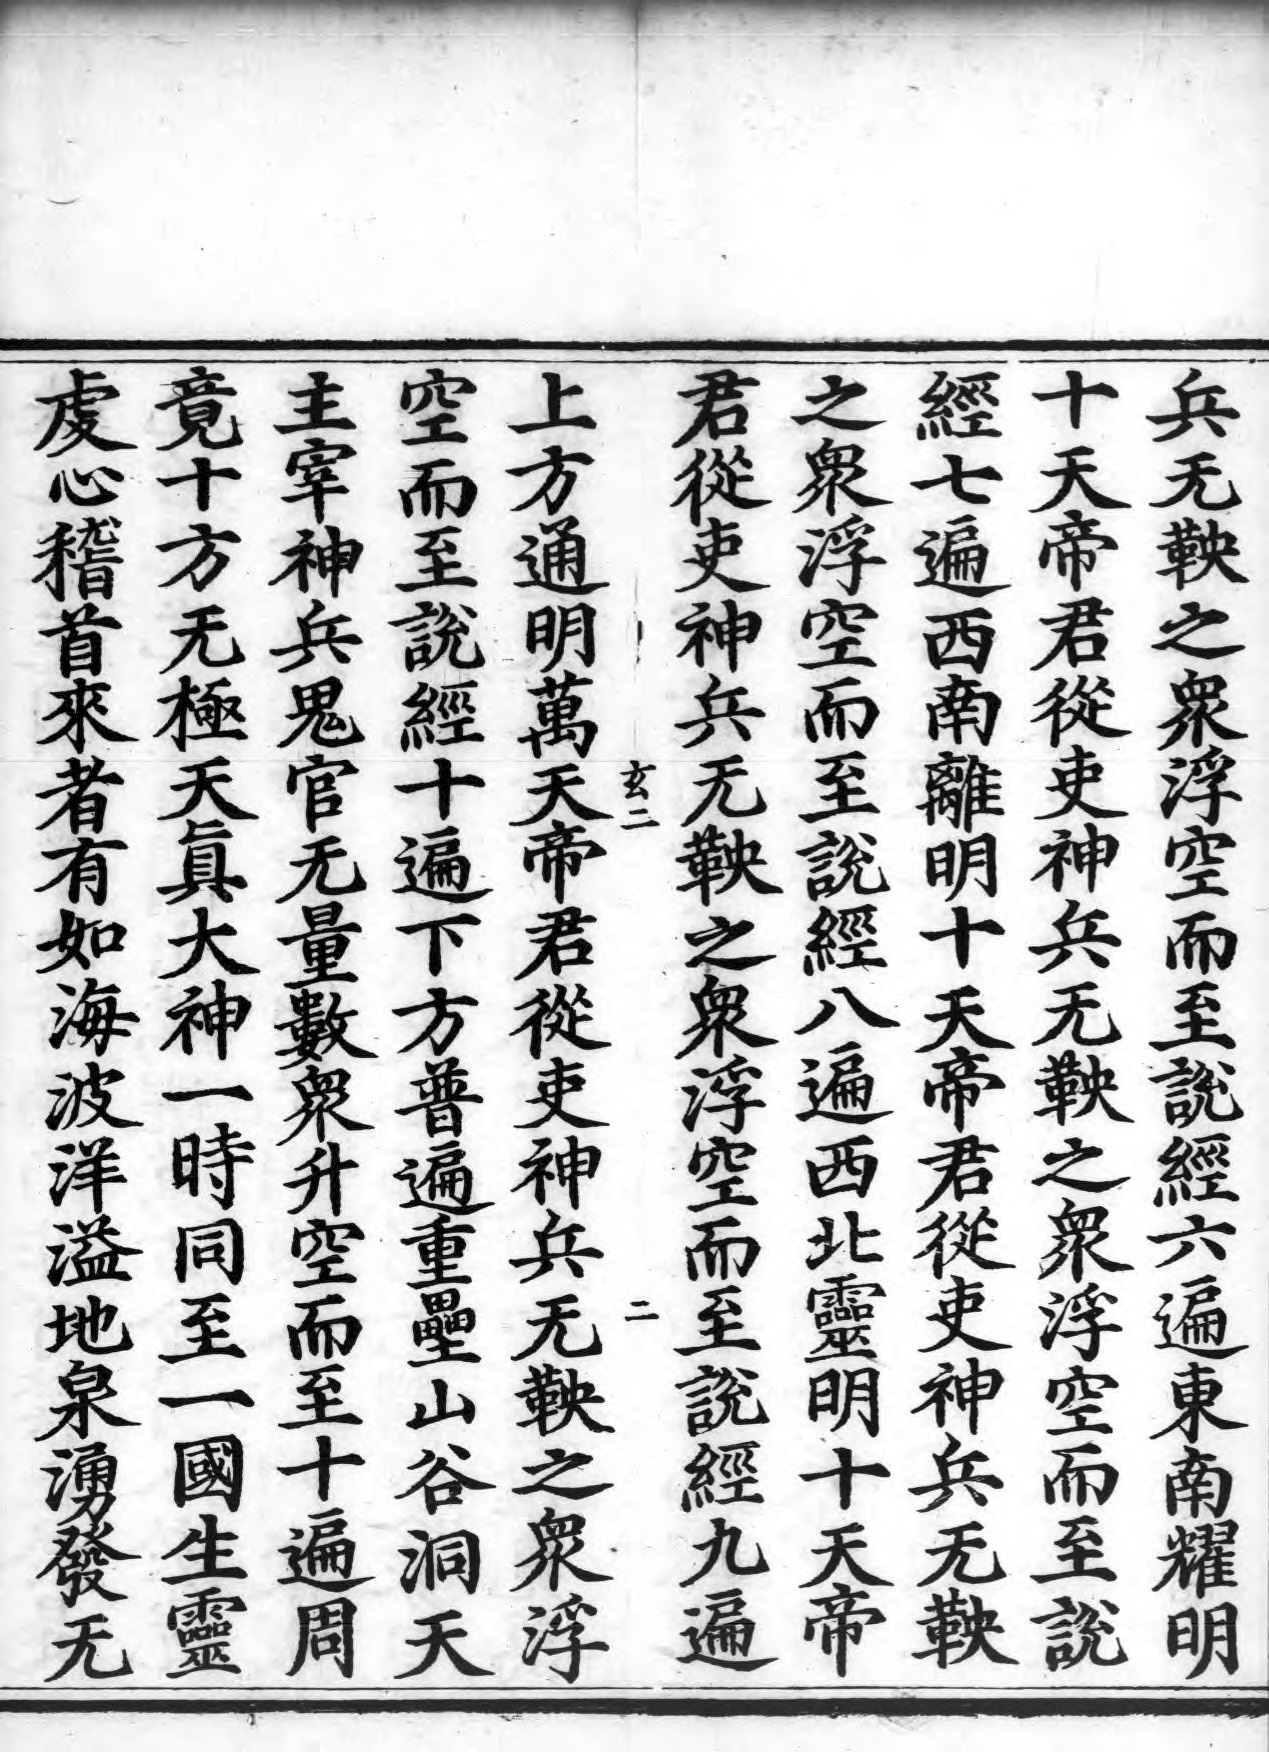 兵无鞅之眾浮空而至說經六遍東南耀明
十天帝君從吏神兵无鞅之眾浮空而至說
經七遍西南離明十天帝君從吏神兵无鞅
之眾浮空而至說經八遍西北靈明十天帝
君從吏神兵无鞅之眾浮空而至說經九遍
玄二
二
上方通明萬天帝君從吏神兵无鞅之眾浮
空而至說經十遍下方普遍重壘山谷洞天
主宰神兵鬼官无量數眾升空而至十遍周
竟十方无極天真大神一時同至一國生靈
虔心稽首來者有如海波洋溢地泉湧發无